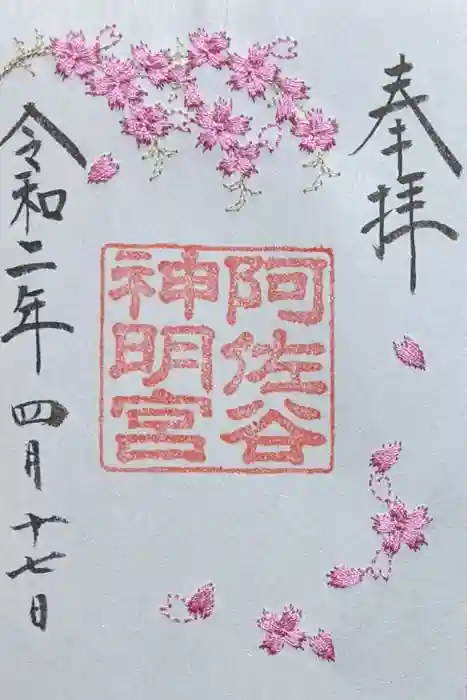 奉拝
阿佐谷
神明宮
令和二年四月十七日